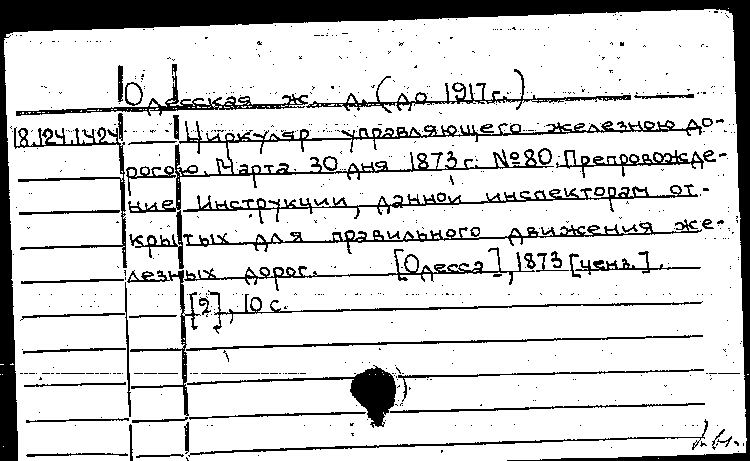 Одесская ж. д. (до 1917г.).
18.124.1.424 Циркуляр управляющего железною до-
рогою. Марта 30 дня 1873 г. №80. Препровожде-
ние Инструкции, данной инспекторам от-
крытых для правильного движения же-
лезных дорог. [Одесса], 1873 [ценз.].
[2], 10 с.